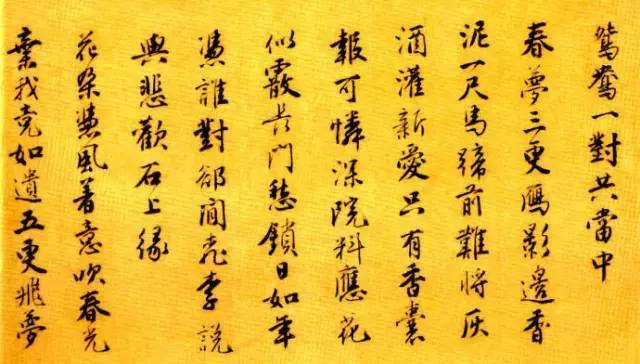 鴛鴦一對共當中
春夢三更鴈影邊香
泥一尺馬蹄前難將灰
酒灌新愛只有香囊
報可憐深院料應花
似霰長門愁鎖日如年
憑誰對郤閒桃李說
與悲歡石上緣
花朶慧風着意吹春光
棄我竟如遺五更飛夢